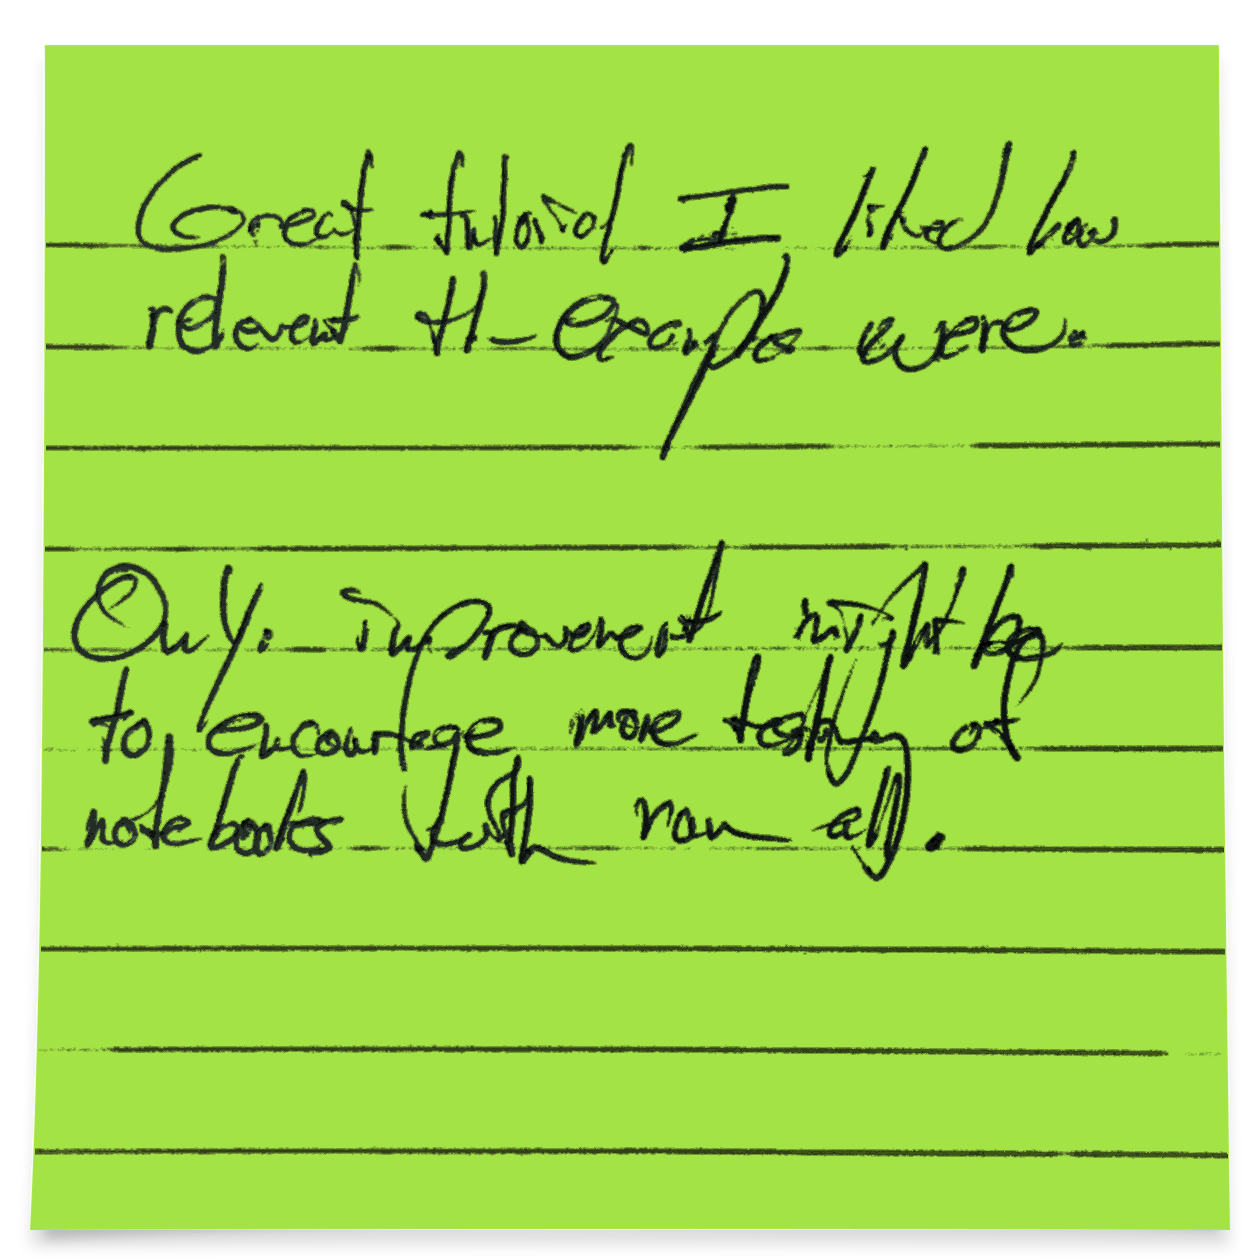 Great tutorial I liked how
relevent the example were.
Only improvement might be
to encourage more testing of
notebooks with run all.